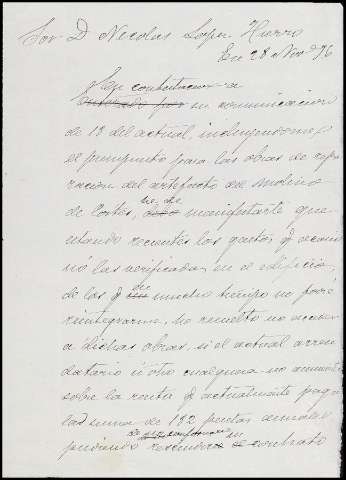 Sor D Nicolas Lopez Hierro
En 28 Novbe 96
En contestacion a
su comunicacion
de 18 del actual, incluyendome
el presupuesto para las obras de repa
racion del artefacto del molino
de Cortes, he de manifestarle que
estando recientes los gastos q ocasio
nó las verificadas en el edificio,
de los q en mucho tiempo no podre
reintegrarme, he resuelto no acceder
a dichas obras, si el actual arren
datario ú otro cualquiera no aumenta
sobre la renta q actualmente paga
la suma de 182 pesetas anuales
pudiendo rescindir su contrato